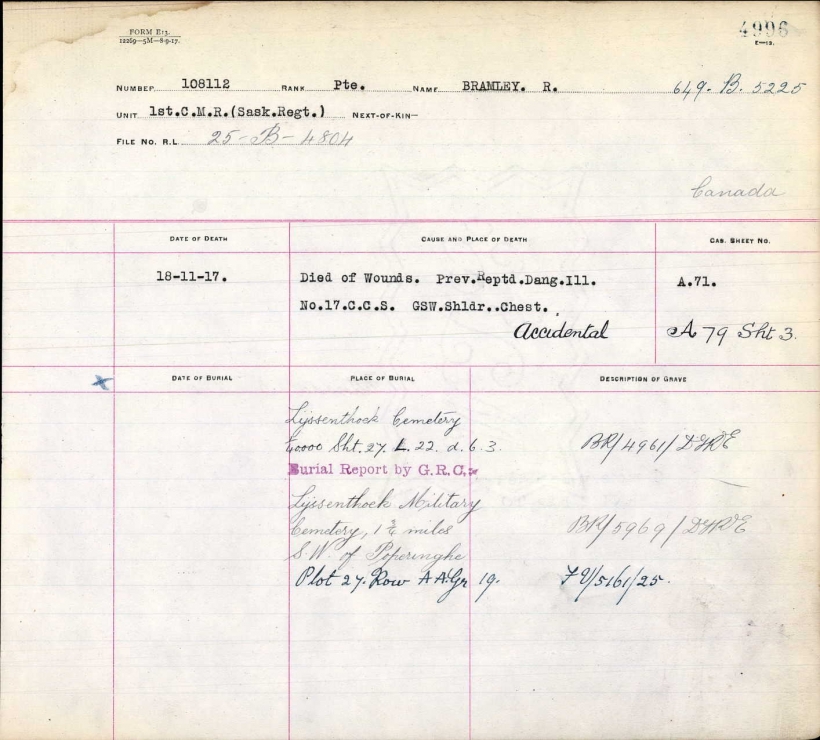 FORM E13.
12269—5M—8-9-17.
4996
E—13.
NUMBER 108112 RANK Pte. NAME BRAMLEY. R. 649. B. 5225
UNIT 1st.C.M.R.(Sask.Regt.) NEXT-OF-KIN—
FILE NO. R.L. 25-B-4804
Canada
DATE OF DEATH CAUSE AND PLACE OF DEATH CAS. SHEET NO.
18-11-17. Died of Wounds. Prev.Reptd.Dang.Ill. A.71.
No.17.C.C.S. GSW.Shldr..Chest.
Accidental A 79 Sht 3.
x DATE OF BURIAL PLACE OF BURIAL DESCRIPTION OF GRAVE
Lijssenthoek Cemetery
40000 Sht. 27. L. 22. d. 6. 3. BR/4961/DGRE
Burial Report by G.R.C.
Lijssenthoek Military
Cemetery, 1¾ miles BR/5969/DGRE
S.W. of Poperinghe
Plot 27. Row AA Gr 19. FV/5161/25.